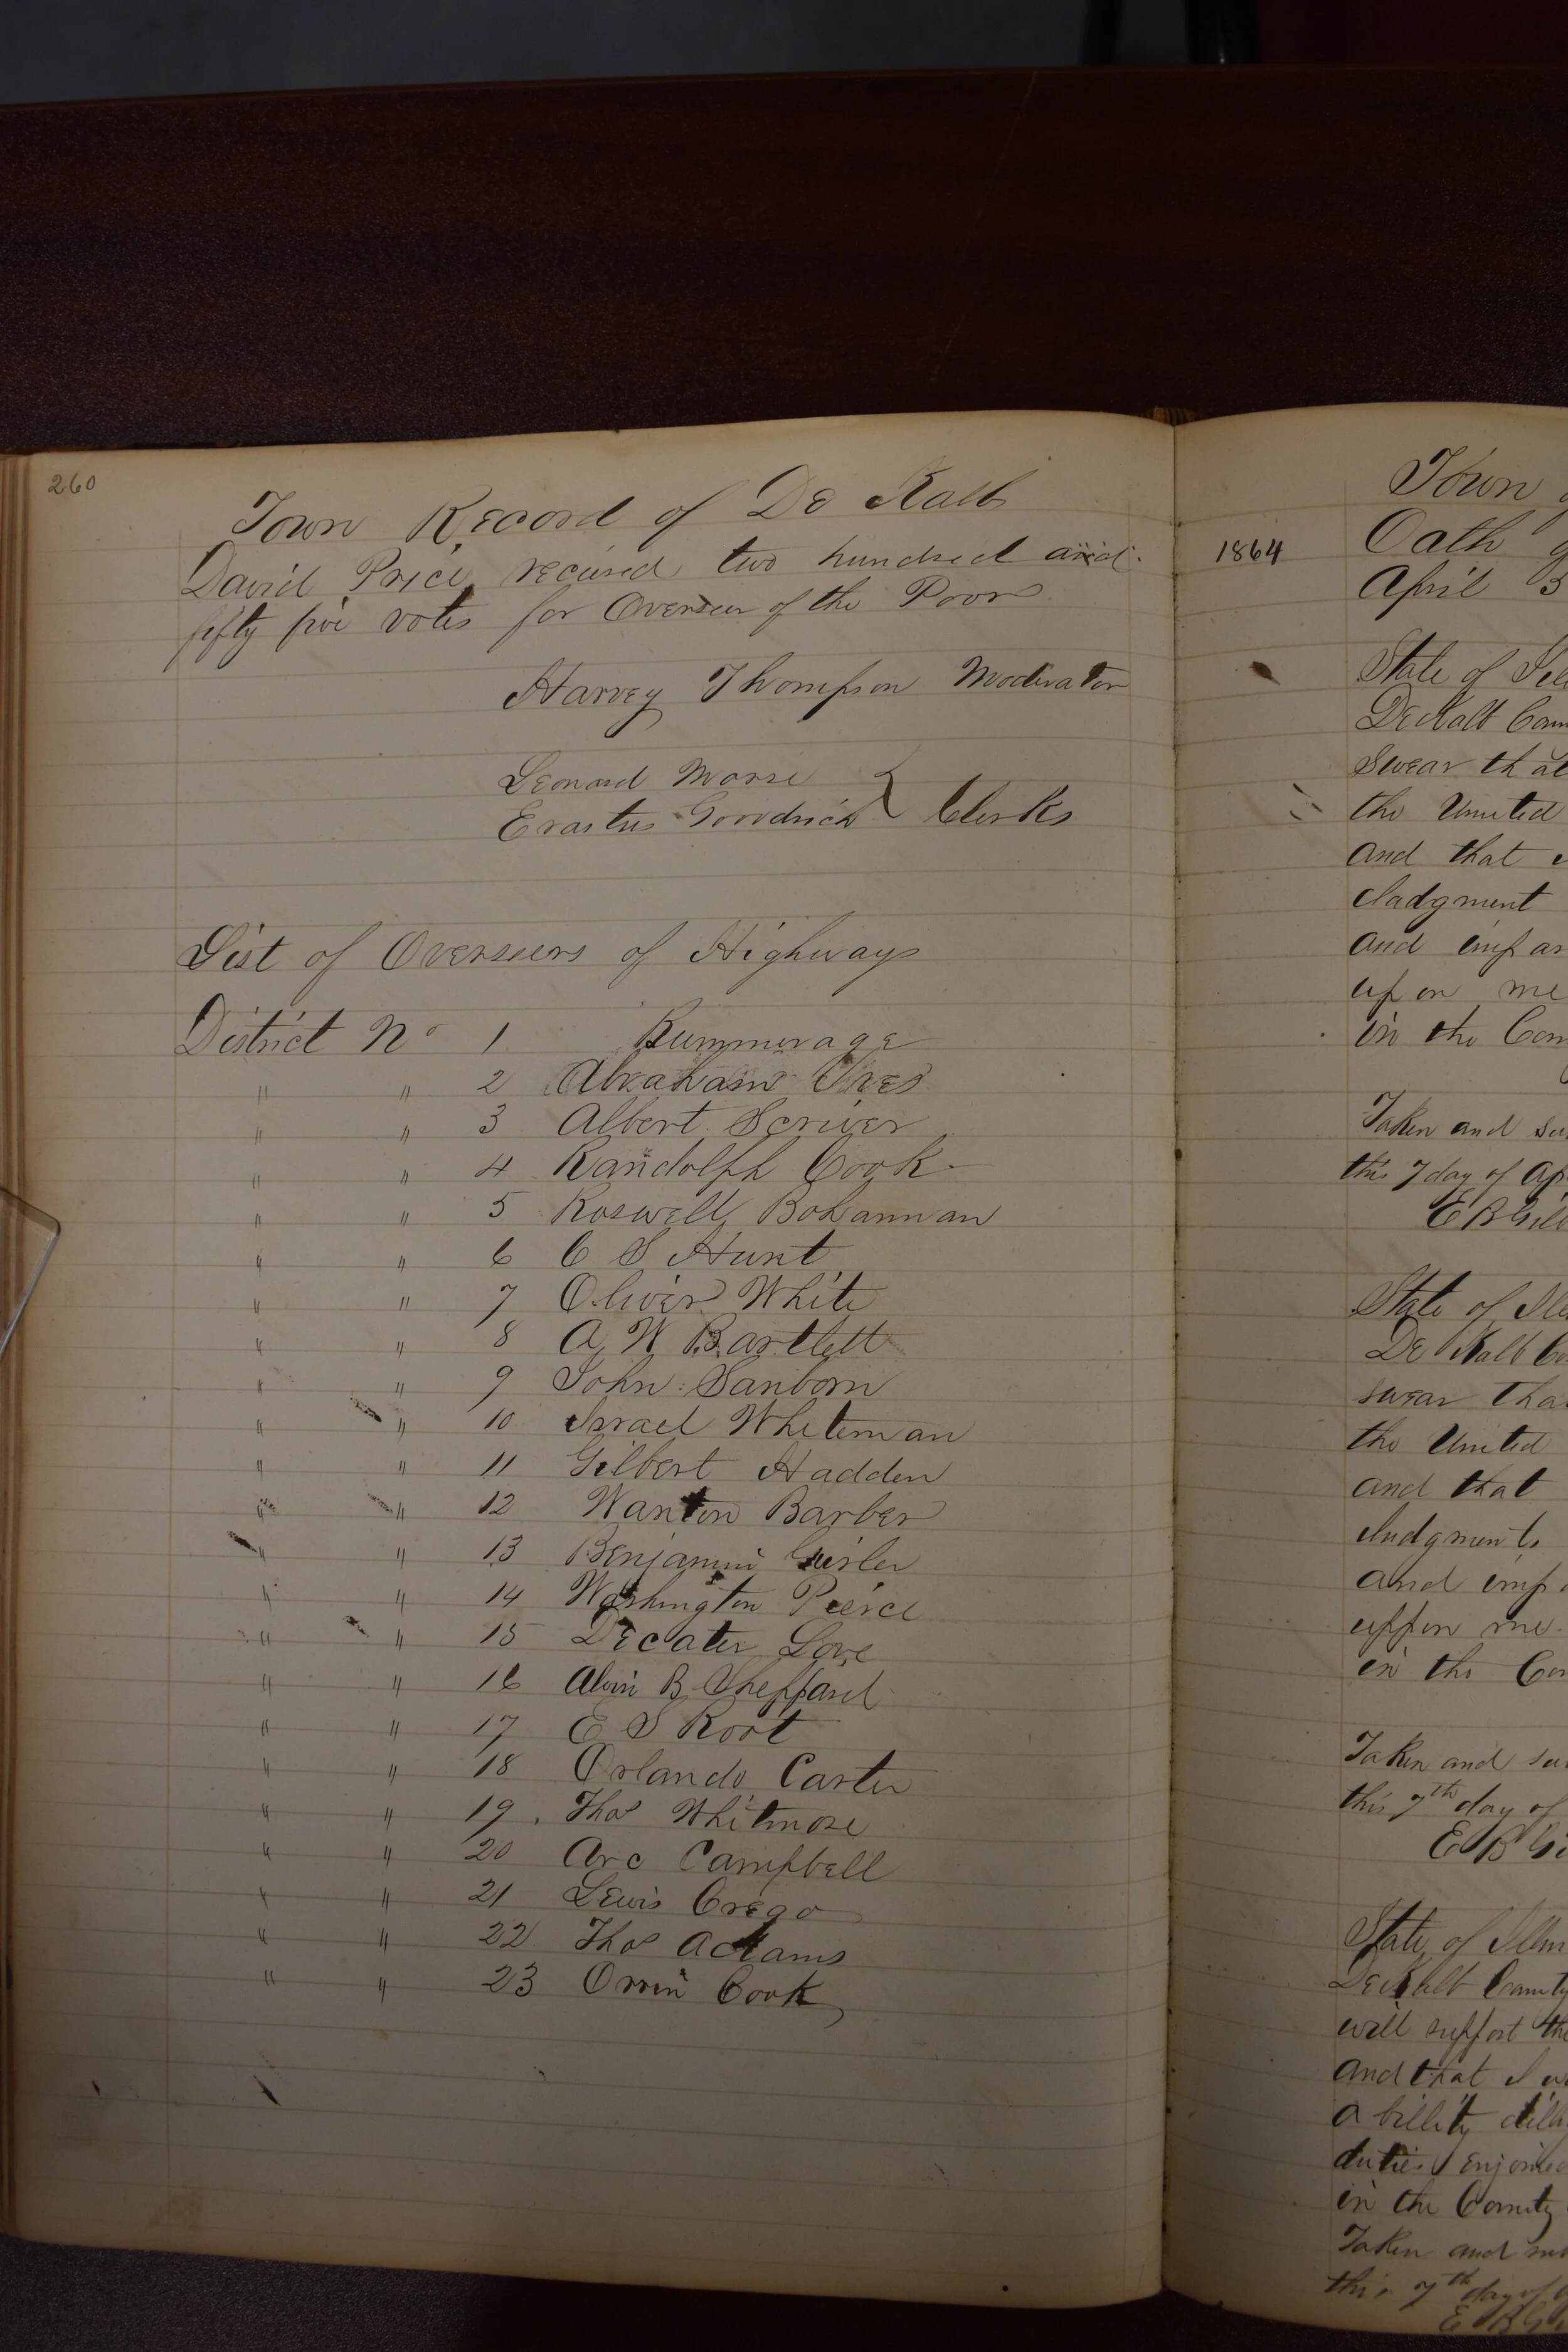 260
Town Record of De Kalb
David Price recieved two hundred and
fifty five votes for Overseer of the Poor
Harvey Thompson Moderator
Leonard Morse
Erastus Goodrich } Clerks
List of Overseers of Highways
District No 1 Rummerage
" " 2 Abraham Ives
" " 3 Albert Scriver
" " 4 Randolph Cook
" " 5 Roswell Bohannan
" " 6 C S Hunt
" " 7 Oliver White
" " 8 A W Bartlett
" " 9 John Sanborn
" " 10 Israel Whiteman
" " 11 Gilbert Hadden
" " 12 Wanton Barber
" " 13 Benjamin
" " 14 Washington Peirce
" " 15 Decater Love
" " 16 Alvin B Sheppard
" " 17 E S Root
" " 18 Orlando Carter
" " 19 Thos Whitmore
" " 20 Arc Campbell
" " 21 Lewis Crego
" " 22 Thos Adams
" " 23 Orrin Cook
Town
1864 Oath
April 5
State of
DeKalb
swear that
the United
and that
and
up on me
in the
Taken and
this 7 day of
E B
State of
De Kalb
swear
the United
and that
and
uppon me
in the
Taken and
this 7th day of
E B
State of
DeKalb County
will support the
and that I
a billity
duties
in the County
Taken and
this 7th day of
E B